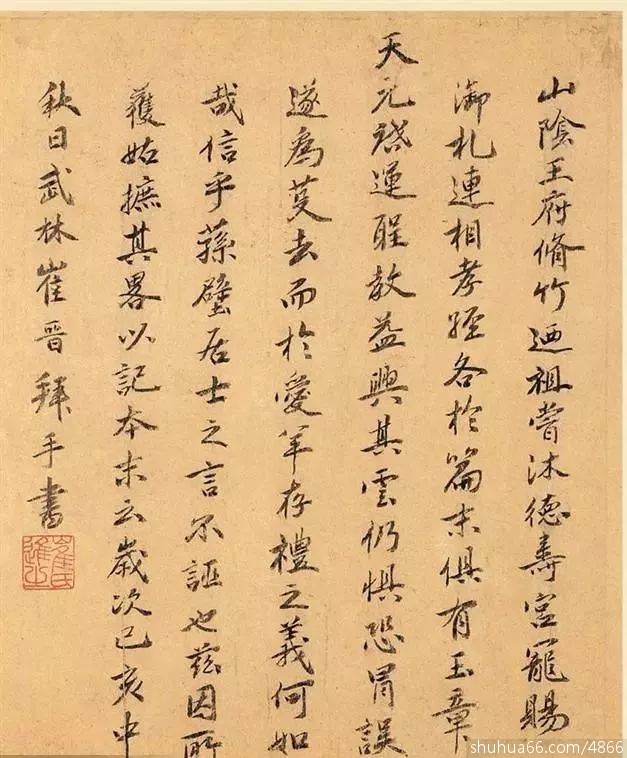 山陰王府脩竹迺祖嘗沐德壽宮寵賜
御札連相孝經各於篇末俱有玉章
天元啓運聖教益興其雲仍懼恐冒誤
遂爲芟去而於愛羊存禮之義何如
哉信乎蓀壁居士之言不誣也茲因所
獲姑摭其畧以記本末云歲次己亥中
秋日武林崔晋拜手書
崔氏進之
shuhua66.com/4866